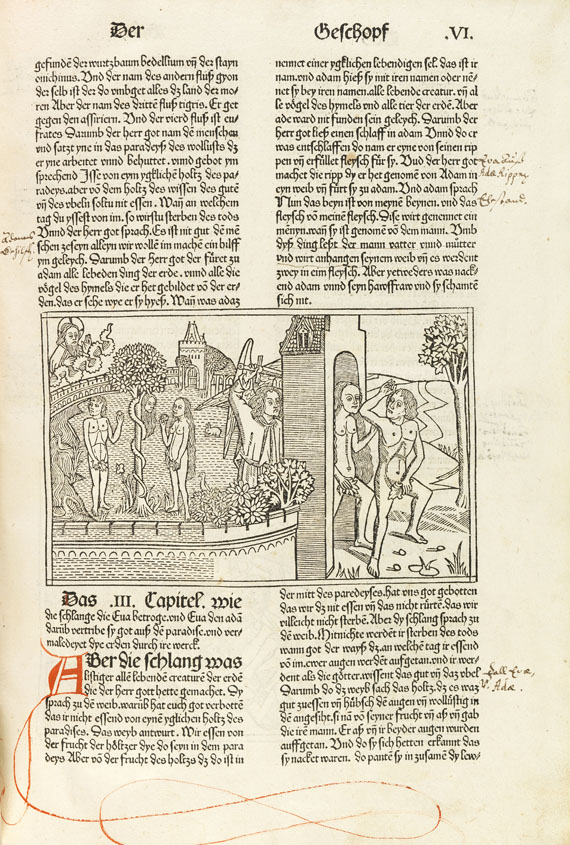 Der Geschopf .VI.
gefundē der wurtzbaum bedellium vn̄ der stayn
onichinus. Vnd der nam des andern fluß gyon
der selb ist der do vmbget alles dz land der mo-
ren Aber der nam des drittē fluß tigris. Er get
gegen den assiriern. Vnd der vierd fluß ist eu-
frates Darumb der herr got nam dē menschen
vnd satzt yne in das paradeyß des wollusts dz
er yne arbeitet vnnd behuttet. vnnd gebot ym
sprechend Isse von eym ygkliche holtz des pa-
radeys. aber võ dem holtz des wissen des gutē
vn̄ des vbeln soltu nit essen. Wan̄ an welchem
tag du yssest von im. so wirstu sterben des tods
Vnnd der herr got sprach. Es ist nit gut dē mē
schen ze sein alleyn wir wollē im machē ein hilff
ym geleych. Darumb der herr got der füret zu
adam alle lebeden ding der erde. vnnd alle die
vögel des hymels die er het gebildet võ der er-
den. das er sche wye er sy hyeß. Wan̄ was adaz
nennet einer ygklichen lebendigen sel. das ist ir
nam. vnd adam hieß sy mit iren namen oder nē-
net sy bey iren namen. alle lebende creatur. vn̄ al
le vögel des hymels vnd alle tier der erdē. Aber
ade ward nit funden sein geleych. Darumb der
herr got ließ einen schlaff in adam Vnnd do er
was entschlaffen do nam er eyne von seinen rip
pen vn̄ erfüllet fleysch für sy. Vnd der herr got
machet die ripp dy er het genomē von Adam in
eyn weib vn̄ fürt sy zu adam. Vnd adam sprach
Nun das beyn ist von meynē beynen. vnd das
fleysch võ meinē fleysch. Dise wirt genennet ein
mēnyn. wan̄ sy ist genomē võ dem mann. Vmb
dyß ding leßt der mann vatter vnnd mütter
vnd wirt anhangen seynem weib vn̄ es werdent
zwey in eim fleysch. Aber yetweders was nack-
end adam vnnd seyn hawsfraw vnd sy schamtē
sich nit.
Eva auß
Adæ Rippen
Ehestand.
Das .III. Capitel. wie
die schlange die Eua betroge. vnd Euen den adā
darüb vertribe sy got auß dē paradise. vnd ver-
maledeyet dye erden durch ire werck.
ABer die schlang was
listiger allē lebendē creaturē der erdē
die der herr gott hette gemachet. Sy
sprach zu dē weib. warūb hat euch got verbottē
das ir nicht essend von eynē yglichen holtz des
paradises. Das weyb antwurt. Wir essen von
der frucht der höltzer dye do seyn in dem para
deys Aber võ der frucht des holtzs dz do ist in
der mitt des paredeyses. hat vns got gebotten
das wir dz nit essen vn̄ das nicht rürtē. das wir
villeicht nicht sterbē. Aber dy schlang sprach zu
dē weib. Mitnichte werdēt ir sterben des tods
wann got der wayß dz. an welchē tag ir essend
võ im. ewer augen werdēt aufgetan. vnd ir wer-
dent als die götter. wissent das gut vn̄ daz vbel
Darumb do dz weyb sach das holtz. dz es waz
gut zu essen vn̄ hübsch dē augen vn̄ wollüstig in
dē angesiht. si nā võ seyner frucht vn̄ aß vn̄ gab
die irē mann. Er aß vn̄ ir beyder augen wurden
auffgetan. Vnd do sy sich hetten erkannt das
sy nacket waren. do pantē sy in zusamē dy lew-
Fall Evæ,
v. Adæ.